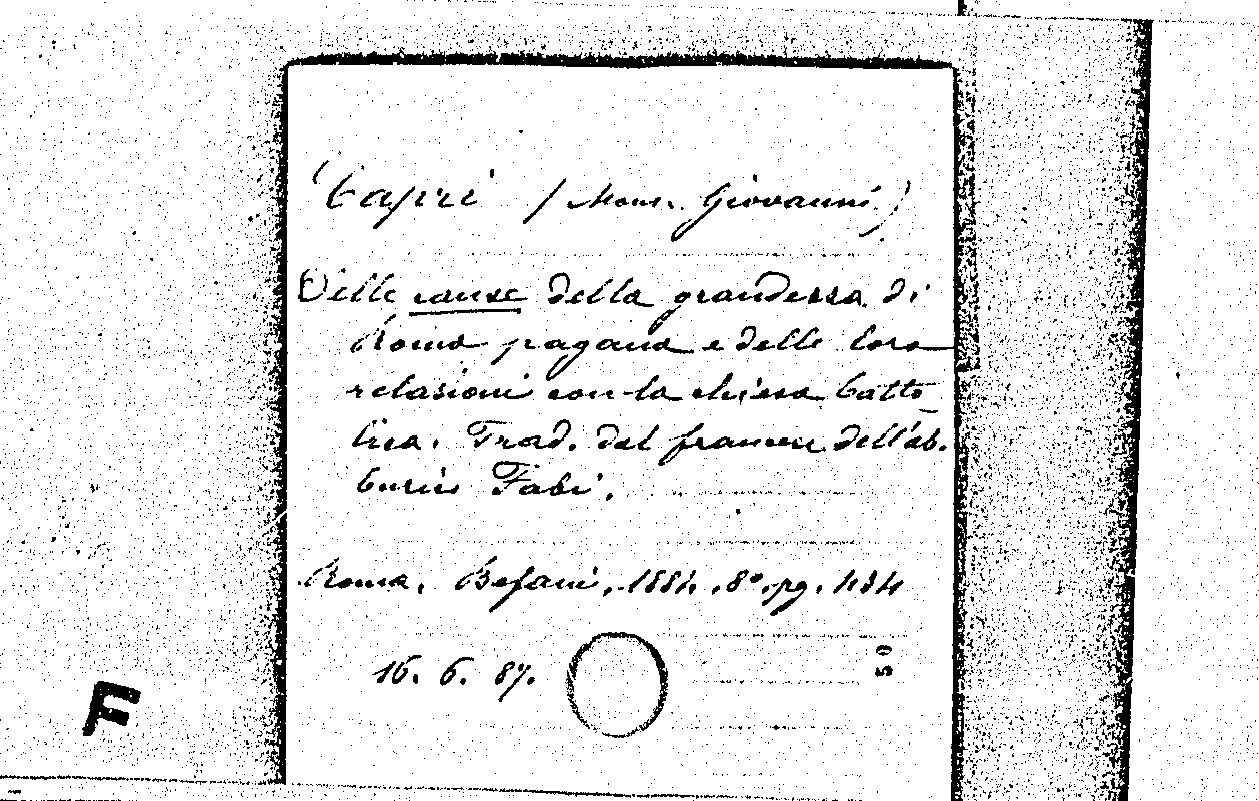 Capri (Mons. Giovanni)
Delle cause della grandezza di
Roma pagana e delle loro
relazioni con la chiesa Catto
lica. Trad. dal francese dell'ab.
Curzio Fabi.
Roma, Befani, 1884. 8°. pg. 434
16. 6. 87.
50
F